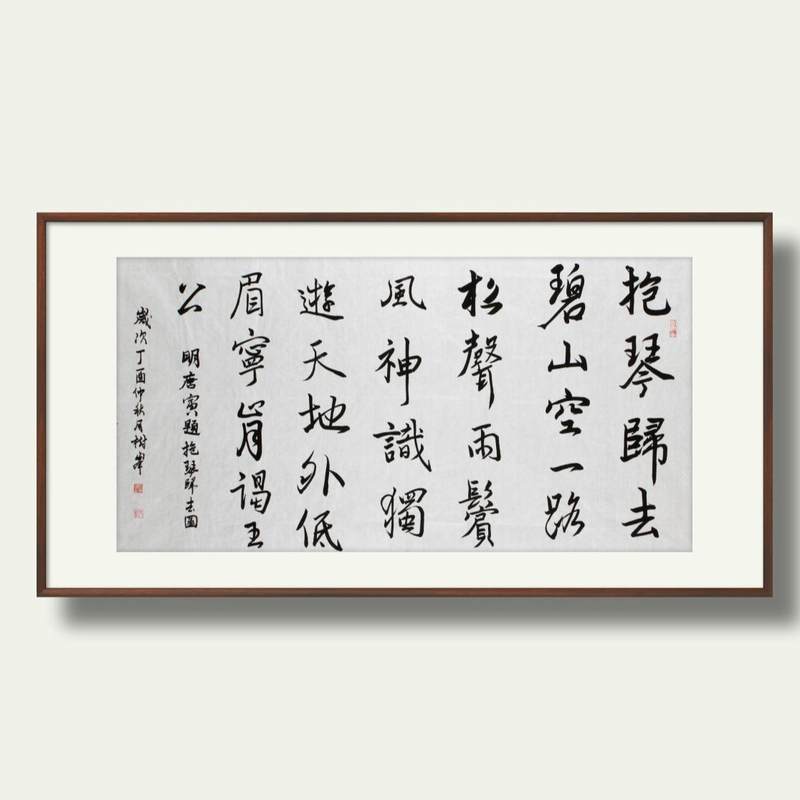 抱琴歸去
碧山空一路
松聲雨鬢
風神識獨
遊天地外低
眉寧肯謁王
公
明唐寅題抱琴歸去圖
歲次丁酉仲秋月樹峯